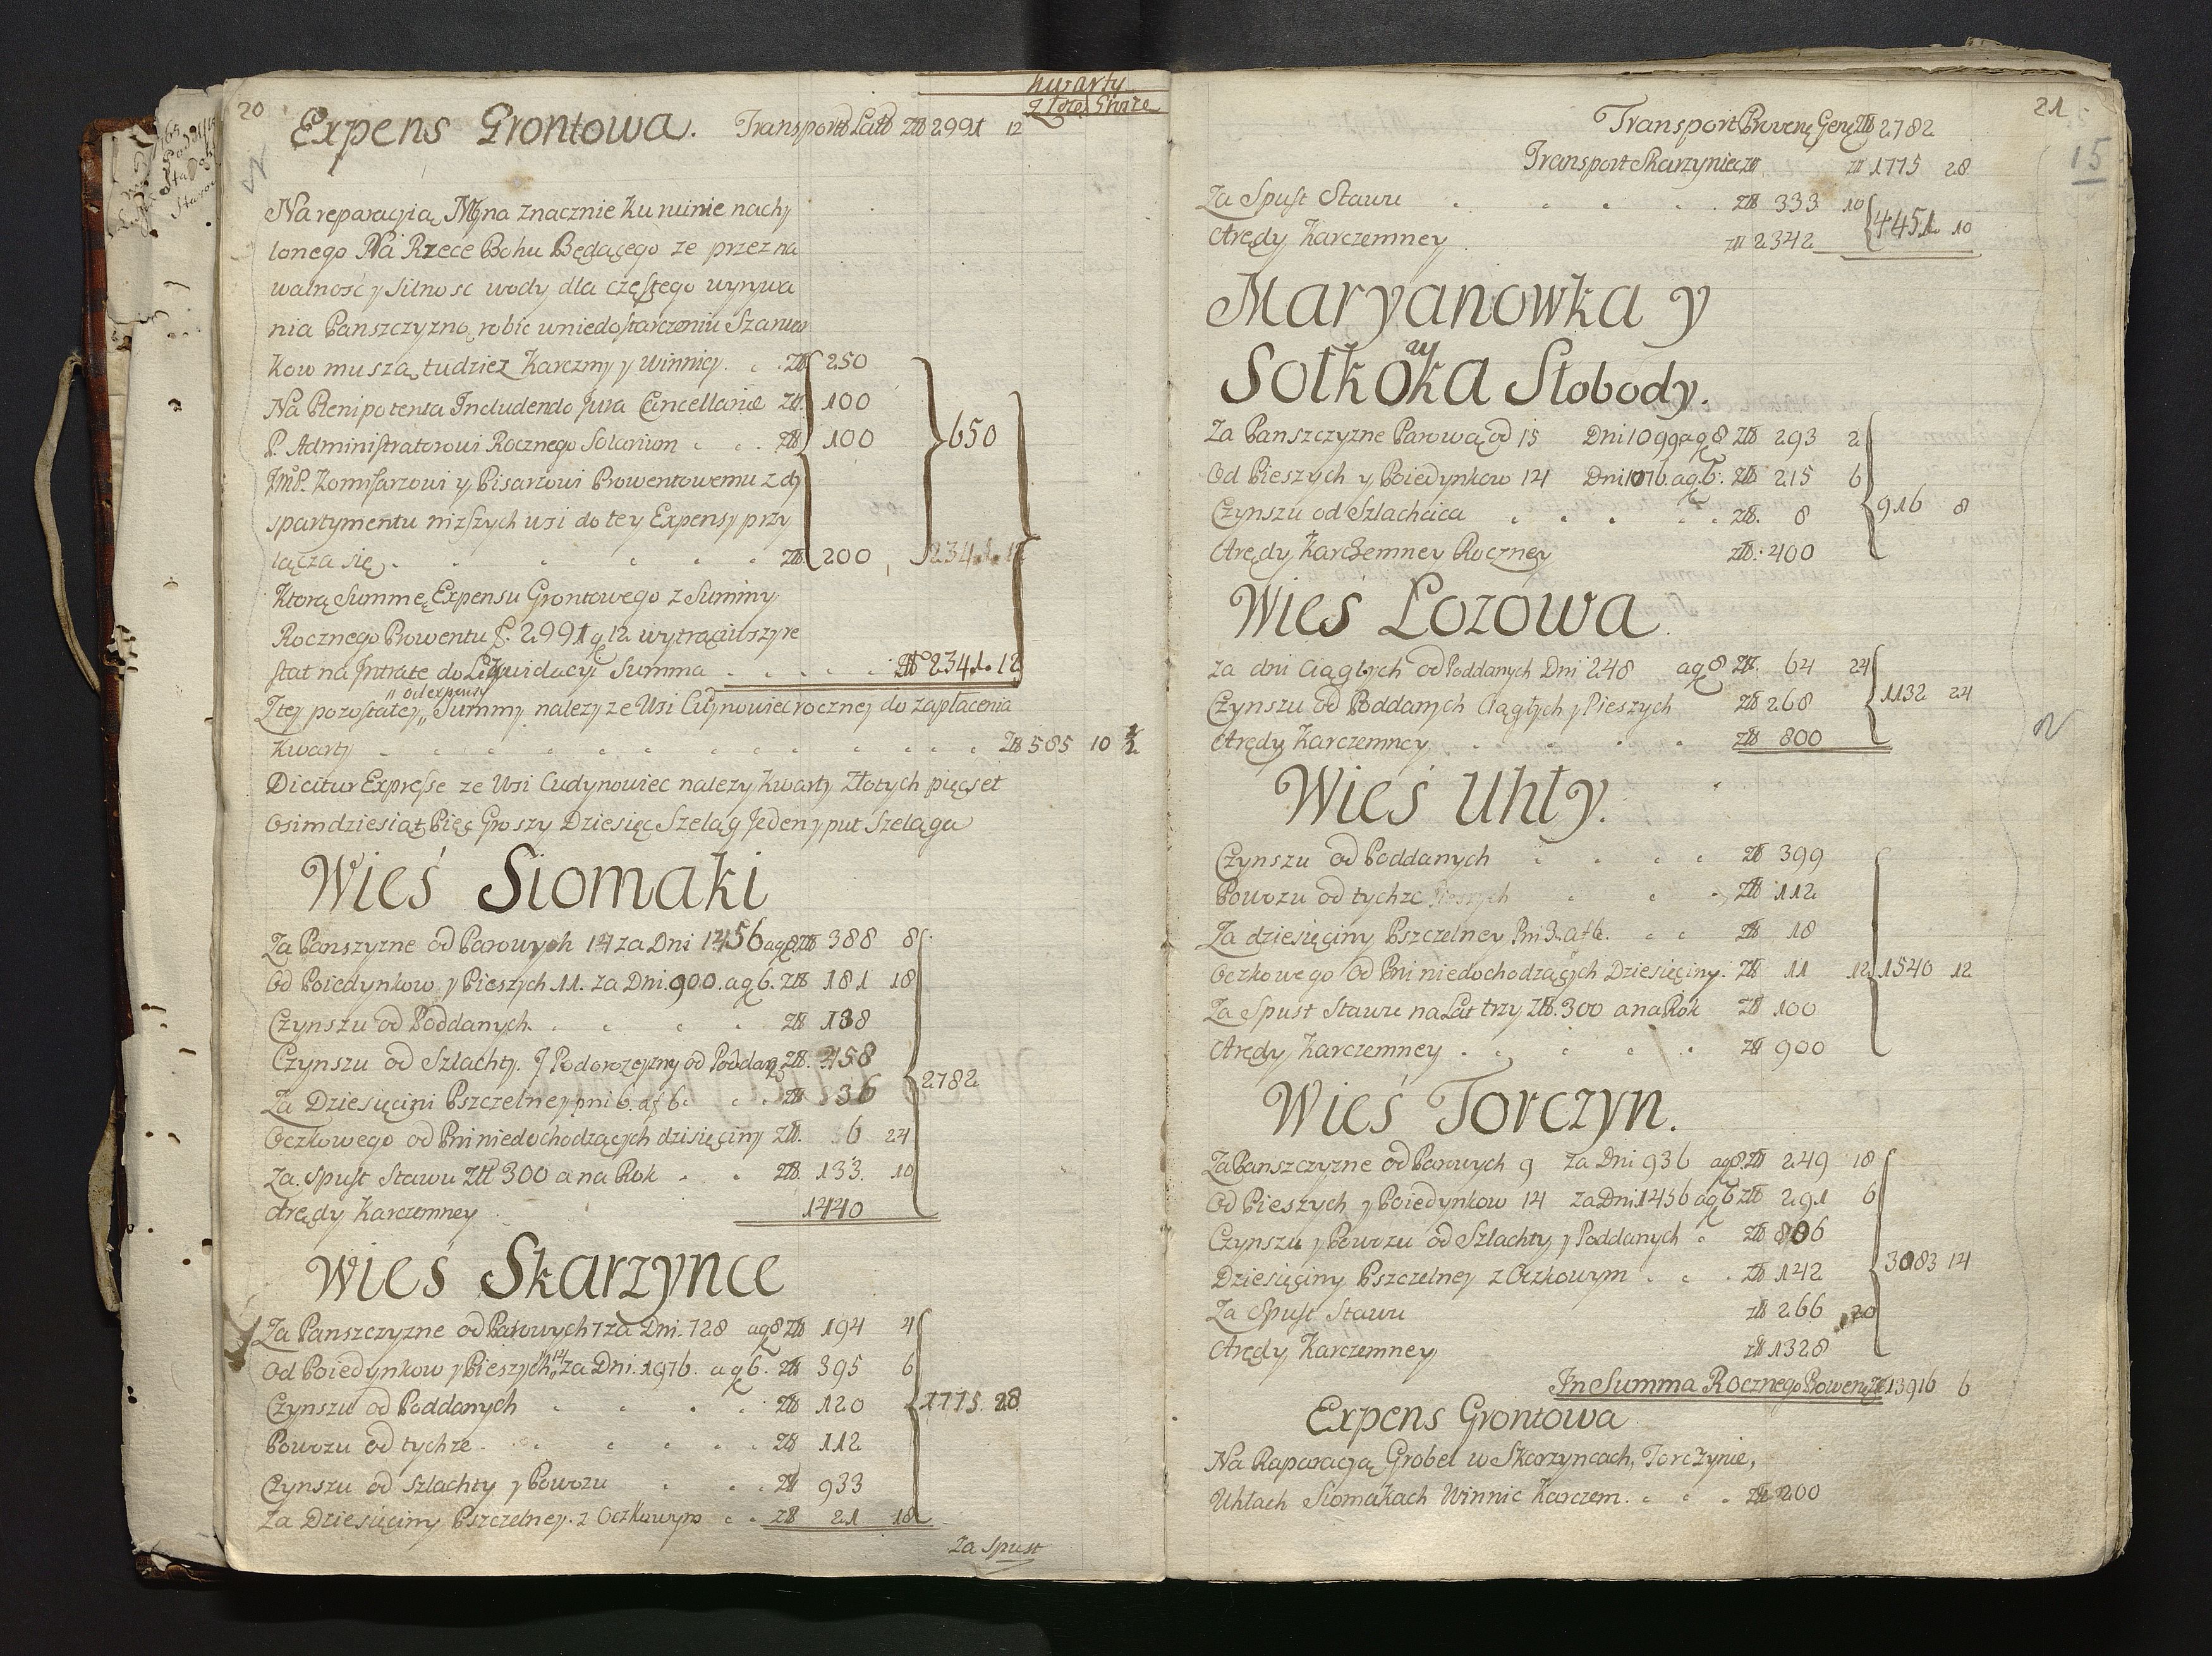 20
kwarty
Złote Gro Sze
Expens Grontowa. Transport Lat Złł 2991 12
Na reparacyią Młyna znacznie ku ruinie nachy
lonego Na Rzece Bohu Będącego ze przez na
walność y Silność wody dla częstego wyrywa
nia Panszczyzną robic w niedostarczeniu Szarwar
kow muszą, tudziez Karczmy y Winnicy . . Złł 250
Na Plenipotenta Includendo Jura Cancellariæ Złł. 100
P. Administratorowi Rocznego Solarium . . Złł 100 650
Jmć P. Komissarzowi y Pisarzowi Prowentowemu z dy
spartymentu niższych wsi do tey Expensy przy
łącza się . . . . . . Złł 200 2341. 12
Ktorą Summę Expensu Grontowego z Summy
Rocznego Prowentu f. 2991 g 12 wytrąciwszy re
stat na Intratę do Likwidacyi Summa . . . . . Złł 2341. 12
Z tej pozostałej " od expensy " Summy nalezy ze Wsi Cudynowiec rocznej do zapłacenia
Kwarty . . . . . . . . . . . Złł 585 10 1/2
Dicitur Expresse ze Wsi Cudynowiec nalezy kwarty Złotych pięcset
Osimdziesiąt Pięc Groszy Dziesięc Szeląg Jeden y puł Szeląga
Wieś Siomaki
Za Panszyzne od Parowych 14 za Dni 1456 a g 8 Złł 388 8
Od Poiedynkow y Pieszych 11. za Dni. 900. a g 6. Złł 181 18
Czynszu od Poddanych . . . . Złł 138
Czynszu od Szlachty. J Podorozczyzny od Poddan Złł. 458
Za Dziesięcini Pszczelney pni 6. a f 6. . . Złł 36 2782
Oczkowego od Pni niedochodzących dzisięciny Złł. 6 24
Za. Spust Stawu Złł 300 a na Rok . . Złł. 133. 10
Arędy Karczemney . 1440
Wieś Skarzynce
Za Panszczyzne od Parowych 7 za Dni. 728 a g 8 Złł 194 4
Od Poiedynkow y Pieszych 14 za Dni. 1976. a g 6. Złł 395 6
Czynszu od Poddanych . . . . Złł 120 1775. 28.
Powozu od tychze . . . . . Złł 112
Czynszu od Szlachty y Powozu . . . Złł 933
Za Dziesięciny Pszczelney. z Oczkowym . . Złł 21 18
Za Spust
21
15
Transport Prowen Gen Złł 2782
Transport Skarzyniec Złł 1775 28
Za Spust Stawu . . . . . Złł 333 10
Arędy Karczemney Złł 2342 4451. 10
Maryanowka y
Sotkowka Słobody.
Za Panszczyzne Parową od 15 Dni 1099 a g 8 Złł 293 2
Od Pieszych y Poiedynkow 14 Dni 1076. a g 6: Złł 215 6
Czynszu od Szlachcica . . . . . Złł. 8 916 8
Arędy Karczemney Roczney Złł.: 400
Wieś Lozowa
za dni Ciągłych od Poddanych Dni 248 a g 8 Złł. 64 24
Czynszu od Poddanych Ciągłych y Pieszych Złł 268 1132 24
Arędy Karczemney . . . . Złł 800
Wieś Uhły.
Czynszu od Poddanych . . . . Złł 399
Powozu od tychze . . . Złł 112
Za dziesięciny Pszczelney Pni 3. a f 6. . . Złł 18
Oczkowego od Pni niedochodzących Dziesięciny. Złł 11 12 1540 12
Za Spust Stawu na Lat trzy Złł. 300 a na Rok Złł 100
Arędy Karczemney . . . . . Złł 900
Wieś Torczyn.
Za Panszczyzne od Parowych 9 za Dni 936 a g 8 Złł 249 18
Od Pieszych y Poiedynkow 14 za Dni 1456 a g 6 Złł 291 6
Czynszu y Powozu od Szlachty y Poddanych . Złł 806
Dziesięciny Pszczelney z Oczkowym . . . Złł 142 3083 14
Za Spust Stawu Złł 266 20
Arędy Karczemney Złł 1328
In Summa Rocznego Prowen Złł 13916 6
Expens Grontowa
Na Raparacyą Grobel w Skarzyncach, Torczynie,
Uhłach Siomakach Winnic Karczem . . . Złł 200